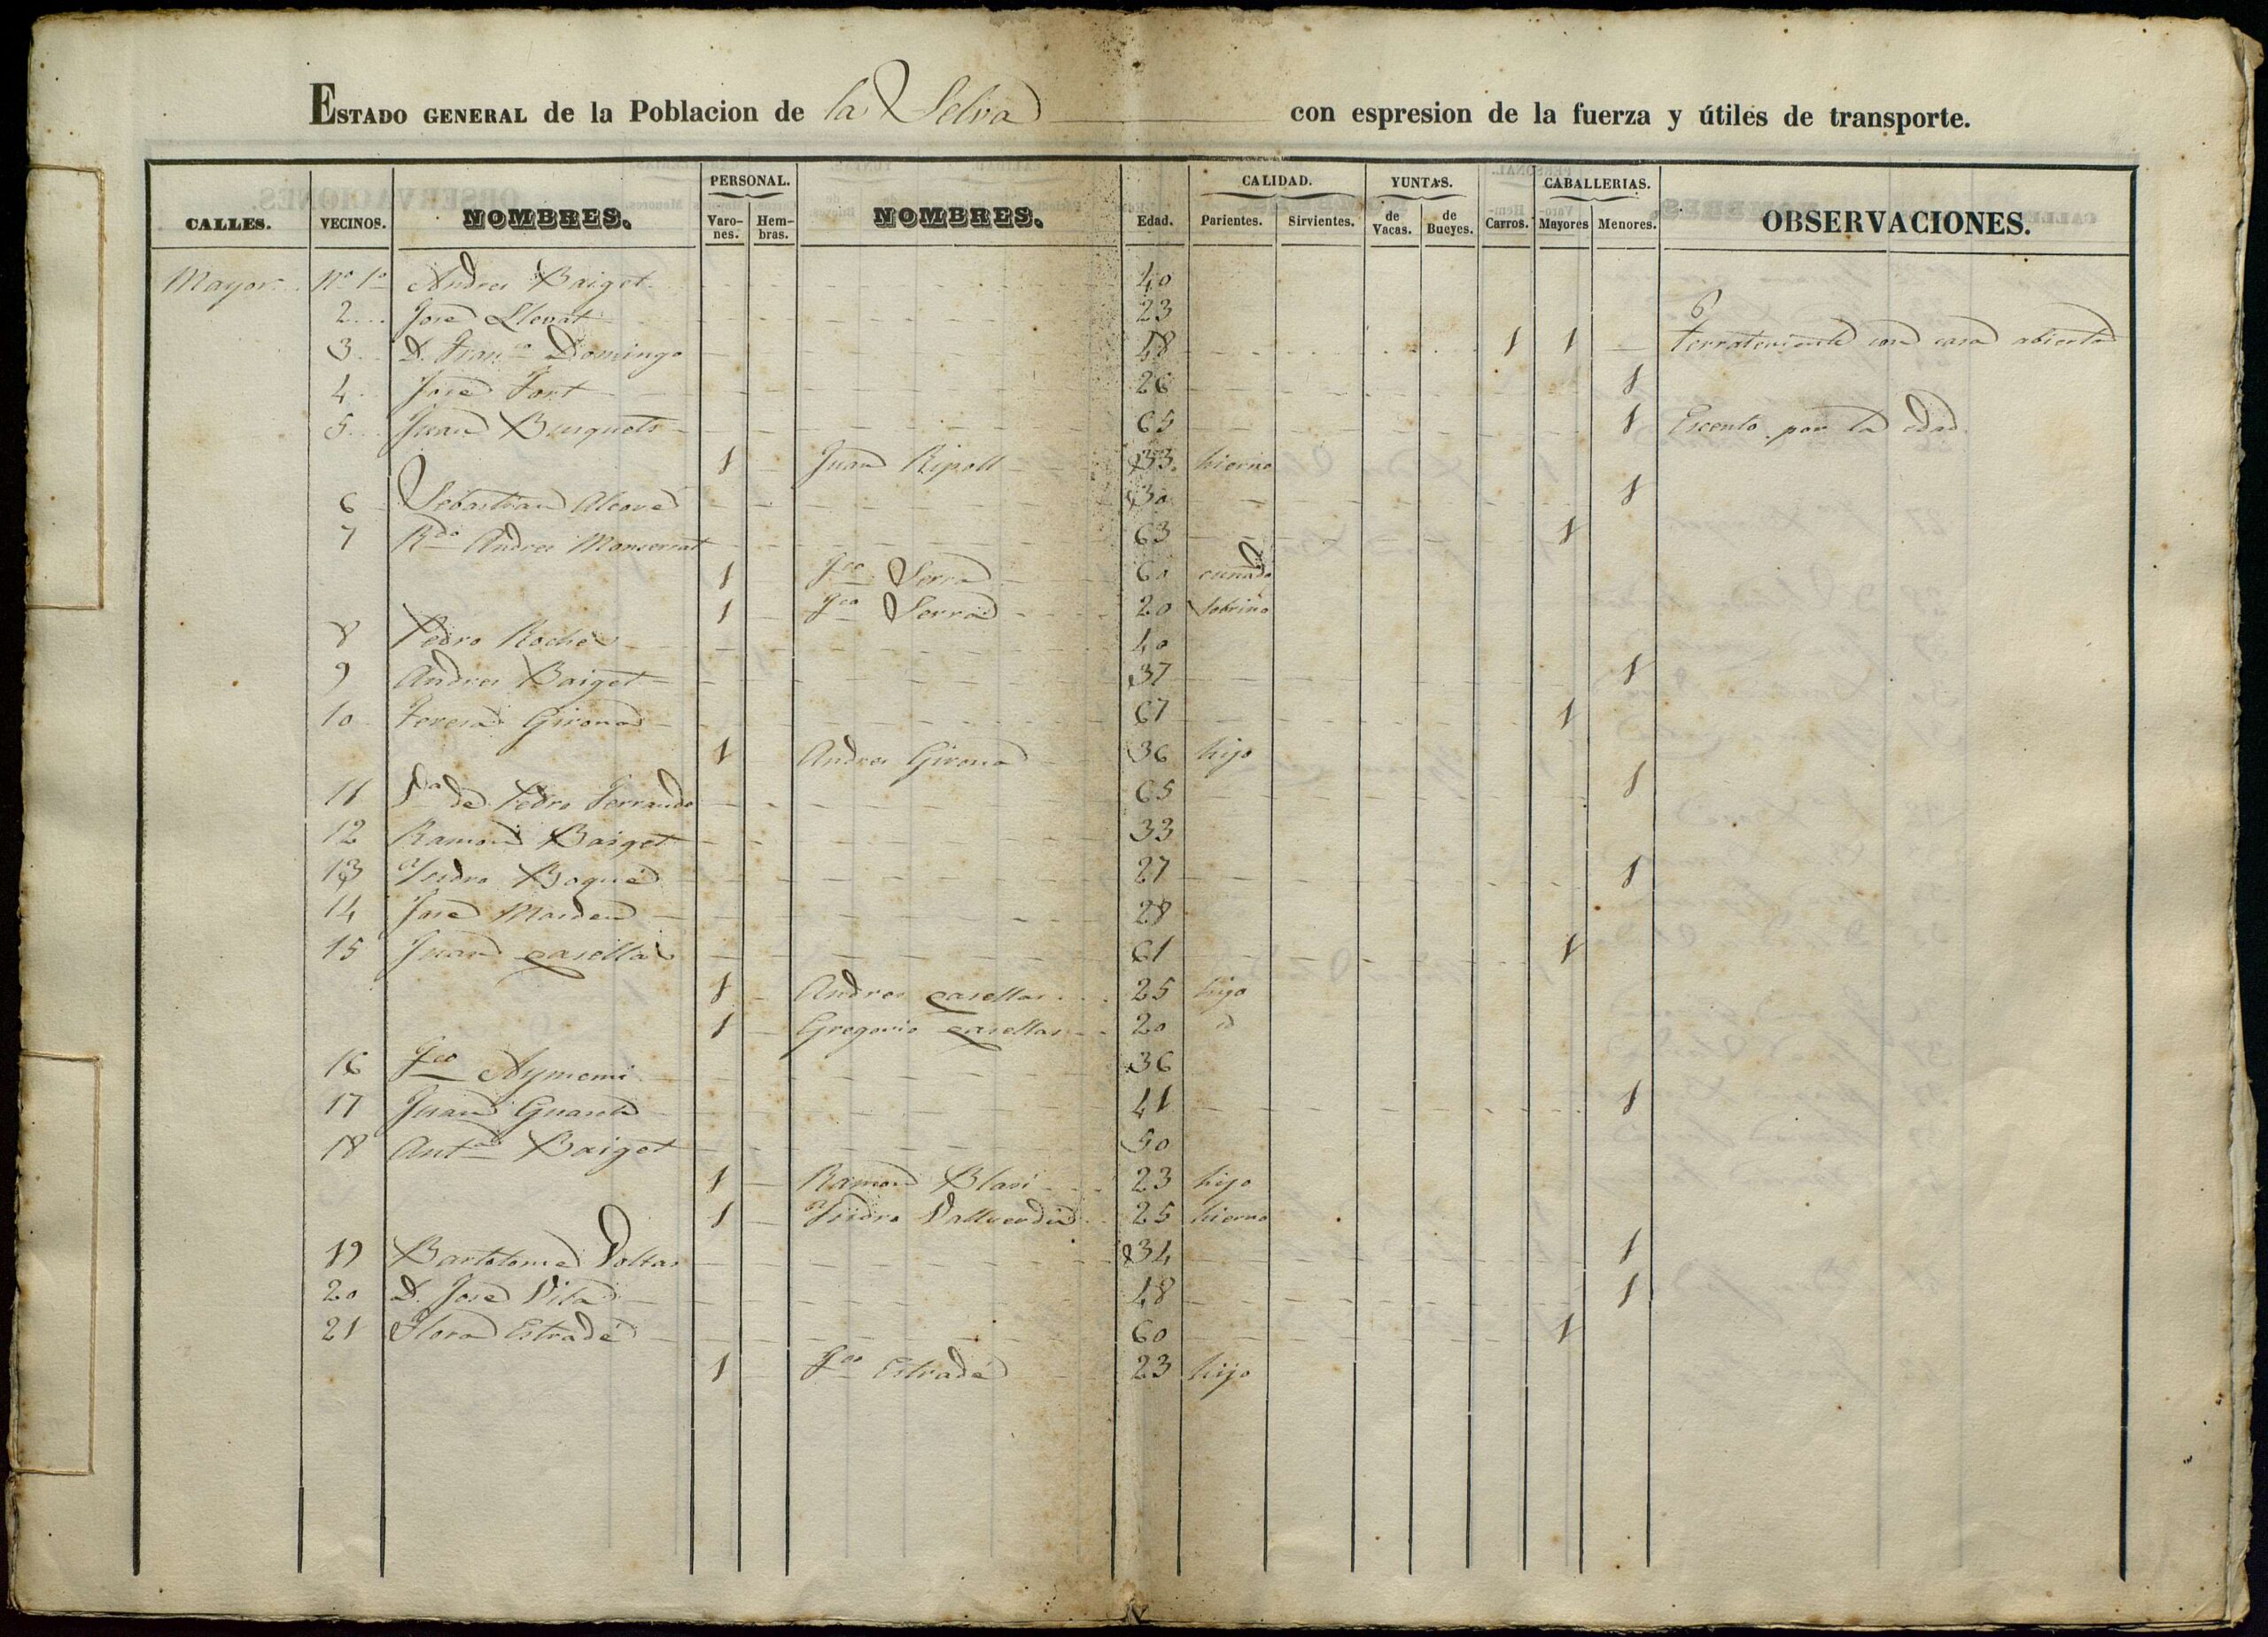 ESTADO GENERAL de la Poblacion de la Selva con espresion de la fuerza y útiles de transporte.
CALLES. VECINOS. NOMBRES. PERSONAL. Varones. Hembras. NOMBRES. Edad. CALIDAD. Parientes. Sirvientes. YUNTAS. de Vacas. de Bueyes. Carros. CABALLERIAS. Mayores Menores. OBSERVACIONES.
Mayor Nº 1º Andres Baiget 40
2 José Llevat 23
3 D. Franco Domingo 48 1 1 Terrateniente con casa abierta
4 José Fort 26 1
5 Juan Busquets 65 1 Escento por la edad
1 Juan Ripoll 33 hierno
6 Sebastian Alcové 30 1
7 Rdo Andres Monserrat 63 1
1 Fco Serra 60 cuñado
1 Fco Serra 20 Sobrino
8 Pedro Roché 40
9 Andres Baiget 37 1
10 Teresa Girona 67 1
1 Andres Girona 36 hijo
11 Va de Pedro Ferrando 65 1
12 Ramon Baiget 33
13 Ysidro Boqué 27 1
14 José Masden 28
15 Juan casellas 61 1
1 Andres casellas 25 hijo
1 Gregorio casellas 20 id
16 Fco Aymemi 36
17 Juan Guasch 41 1
18 Anta Baiget 50
1 Ramon Blasi 23 hijo
1 Ysidro Vallverdú 25 hierno
19 Bartolomé Voltas 34 1
20 D. José Vila 48 1
21 Flora Estradé 60 1
1 Fco Estradé 23 hijo